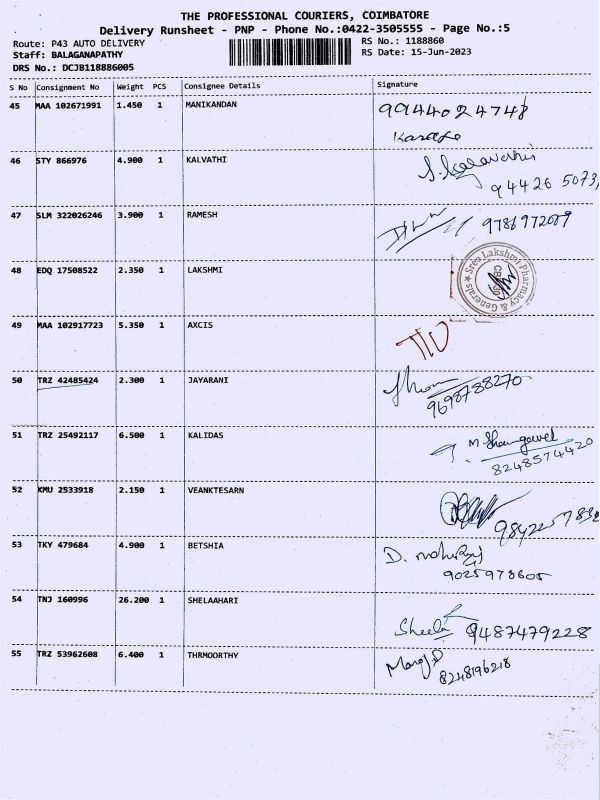 THE PROFESSIONAL COURIERS, COIMBATORE
Delivery Runsheet - PNP - Phone No.:0422-3505555 - Page No.:5
Route: P43 AUTO DELIVERY
RS No.: 1188860
Staff: BALAGANAPATHY
RS Date: 15-Jun-2023
DRS No.: DCJB118886005
S No Consignment No Weight PCS Consignee Details Signature
45 MAA 102671991 1.450 1 MANIKANDAN 9944024748
46 STY 866976 4.900 1 KALVATHI
94426 5073
47 SLM 322026246 3.900 1 RAMESH 9786972089
Sree Lakshmi Pharmacy & Generals
48 EDQ 17508522 2.350 1 LAKSHMI
49 MAA 102917723 5.350 1 AXCIS
50 TRZ 42485424 2.300 1 JAYARANI
9698788270
51 TRZ 25492117 6.500 1 KALIDAS
8248574420
52 KMU 2533918 2.150 1 VEANKTESARN
53 TKY 479684 4.900 1 BETSHIA
9025978605
54 TNJ 160996 26.200 1 SHELAAHARI
Sheela 9487479228
55 TRZ 53962608 6.400 1 THRMOORTHY
8248196218